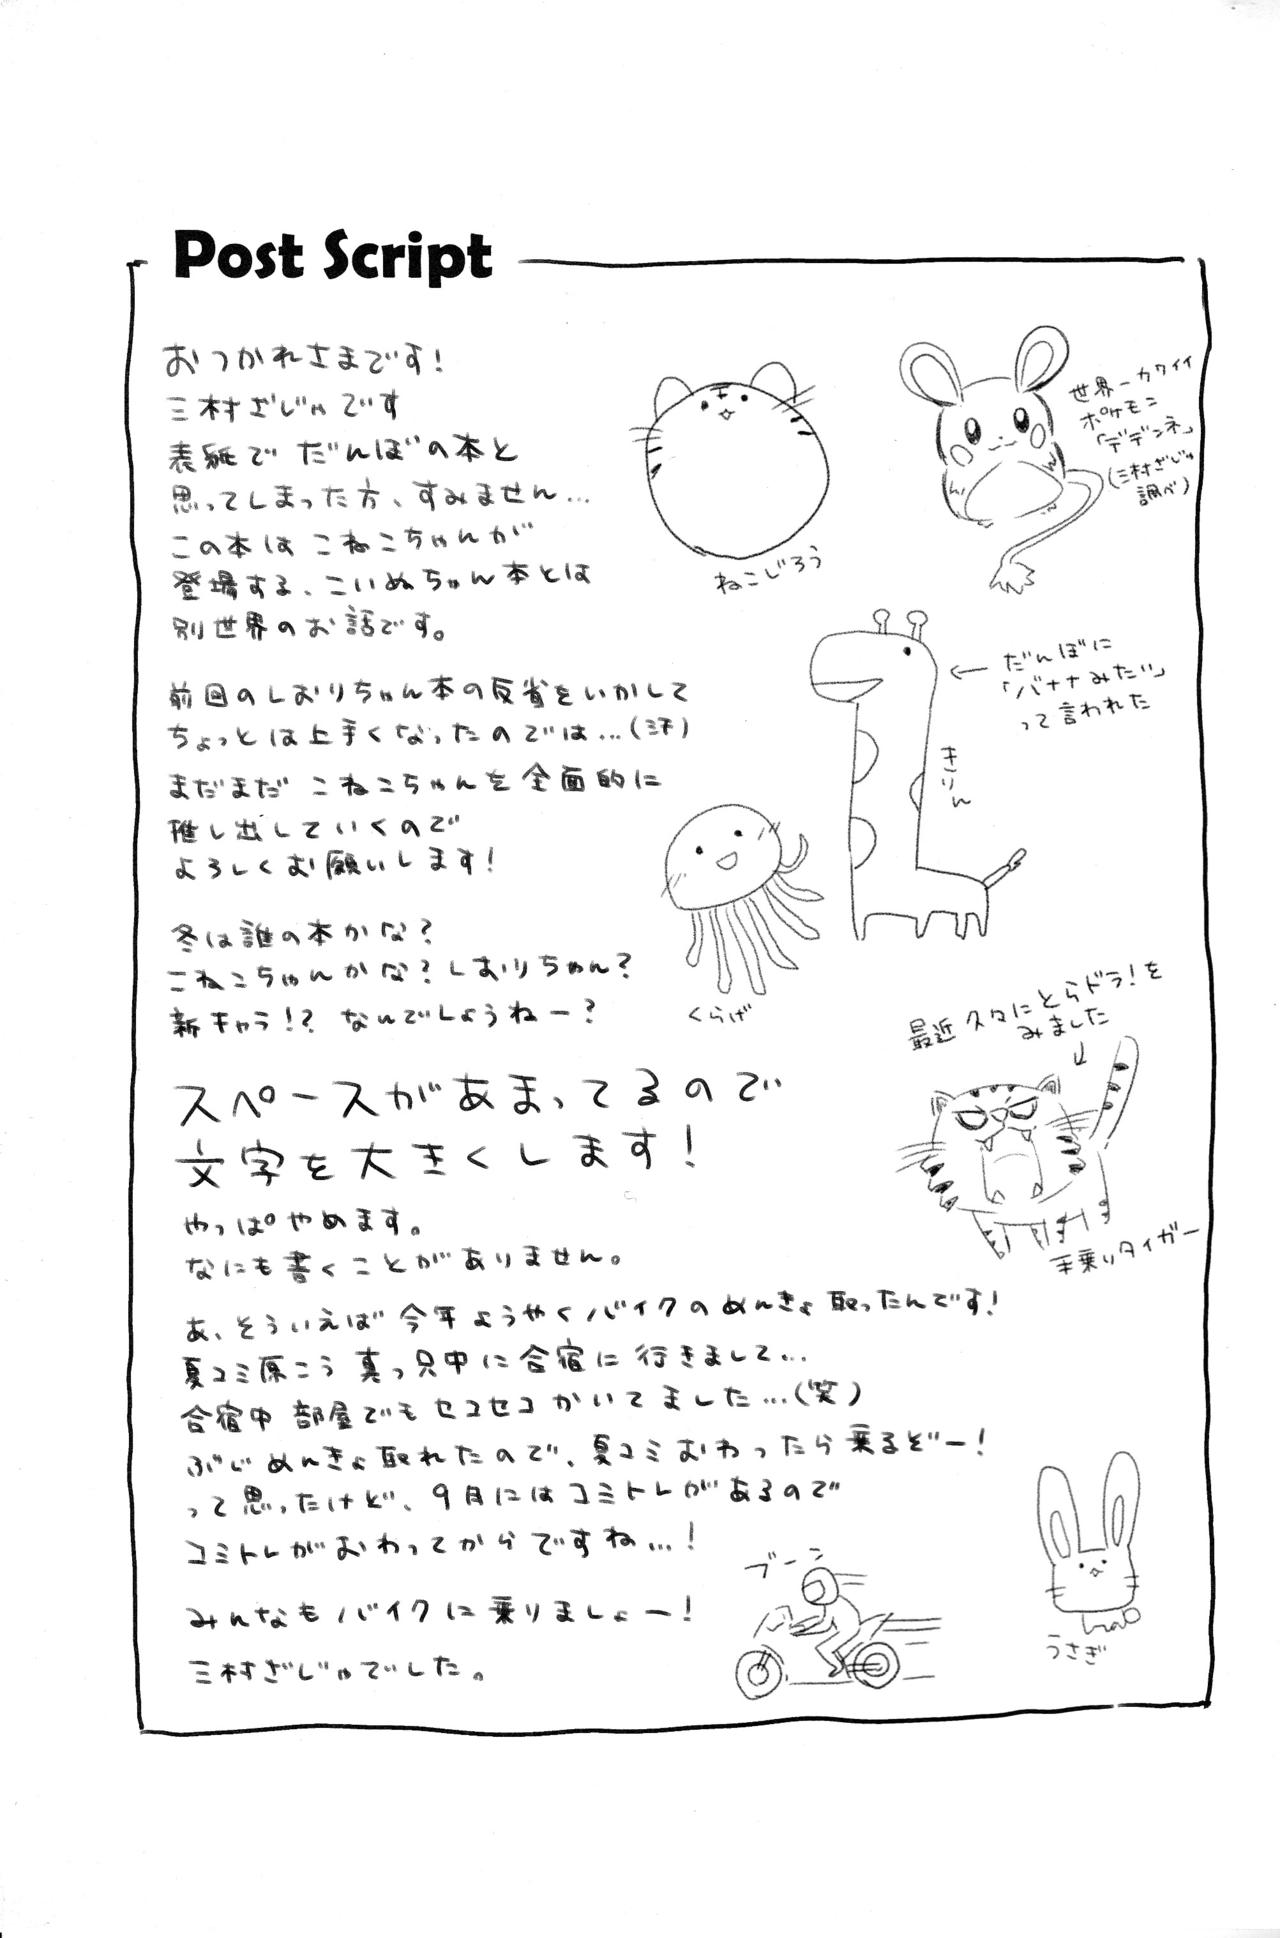 Post Script
おつかれさまです!
三村ざじゃです
表紙で だんぼの本と
思ってしまった方、すみません…
この本は こねこちゃんが
登場する、こいぬちゃん本とは
別世界のお話です。
前回のしおりちゃん本の反省をいかして
ちょっとは上手くなったのでは…(汗)
まだまだ こねこちゃんを全面的に
推し出していくので
よろしくお願いします!
冬は誰の本かな?
こねこちゃんかな?しおりちゃん?
新キャラ!? なんでしょうねー?
スペースがあまってるので
文字を大きくします!
やっぱやめます。
なにも書くことがありません。
あ、そういえば 今年ようやくバイクのめんきょ取ったんです!
夏コミ原こう 真っ只中に合宿に行きまして…
合宿中 部屋でもセコセコかいてました…(笑)
ぶじめんきょ取れたので、夏コミおわったら乗るぞー!
って思ったけど、9月にはコミトレがあるので
コミトレがおわってからですね…!
みんなもバイクに乗りましょー!
三村ざじゃでした。
ねこじろう
世界一カワイイ
ポケモン
「デデンネ」
(三村ざじゃ
調べ)
← だんぼに
「バナナみたい」
って言われた
きりん
くらげ
最近 久々にとらドラ!を
みました
手乗りタイガー
ブーン
うさぎ